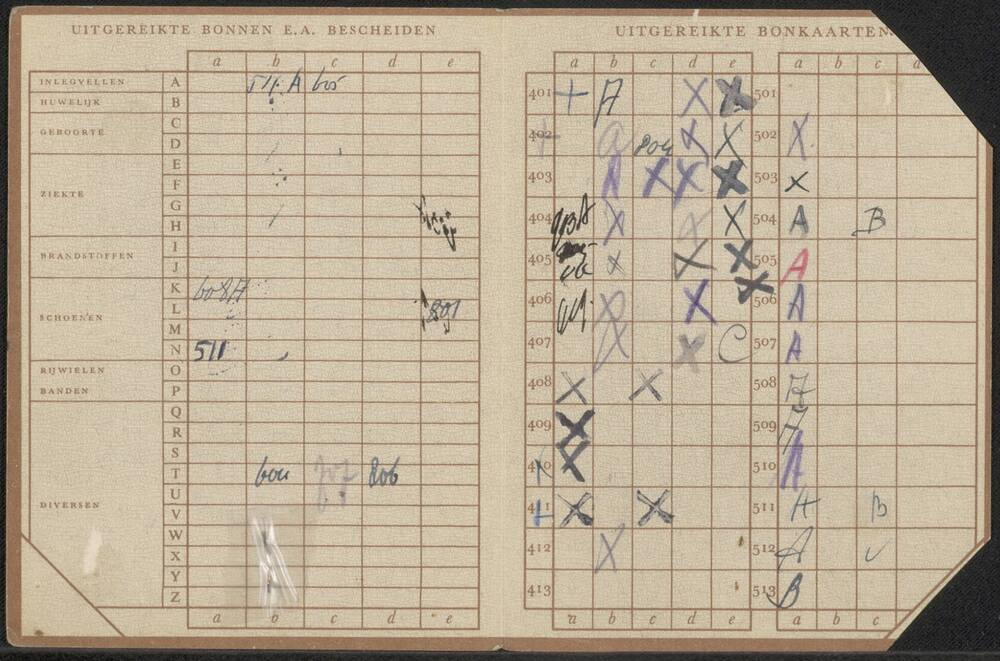 UITGEREIKTE BONNEN E.A. BESCHEIDEN
a b c d e
INLEGVELLEN A
HUWELIJK B
GEBOORTE C
D
ZIEKTE E
F
G
H
BRANDSTOFFEN I
J
SCHOENEN K 608A
L 801
M
N 511
RIJWIELEN O
BANDEN P
Q
R
S
T 806
U
DIVERSEN V
W
X
Y
Z
a b c d e
UITGEREIKTE BONKAARTEN
a b c d e a b c d
401 + A X X 501
402 + a 804 X X 502 X
403 A X X X 503 X
404 X X 504 A B
405 X X X 505 A
406 X X 506 A
407 C 507 A
408 X X 508 A
409 X 509 A
410 X 510 A
411 + X X 511 A B
412 X 512 A
413 513 B
a b c d e a b c d